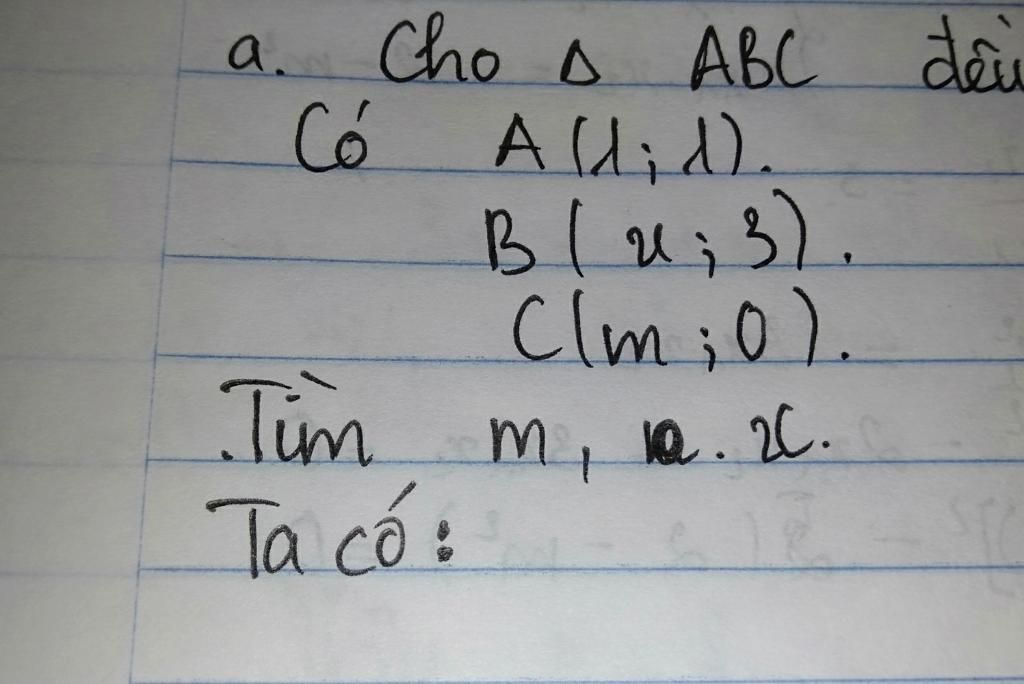 a. Cho Δ ABC đều
Có A(1; 1).
B(x; 3).
C(m; 0).
Tìm m, x.
Ta có: